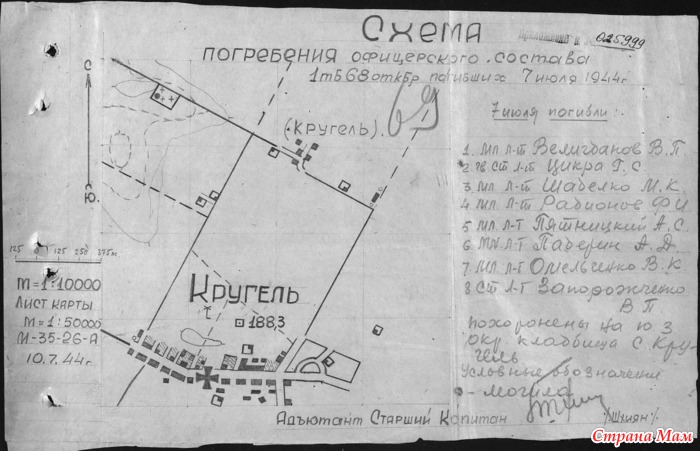 Схема
025999
погребения офицерского состава
1 тб 68 откбр погибших 7 июля 1944 г
69
(Кругель)
С.
Ю.
125 0 125 250 375м
М=1:10000
Лист карты
М=1:50000
М-35-26-А
10.7.44г.
Кругель
188,3
7 июля погибли:
1. мл л-т Величбанов В.П
2 гв ст л-т Цикра Г.С.
3 мл л-т Шабелко М.К.
4 мл л-т Радионов Ф И
5 мл л-т Пятницкий А.С.
6 мл л-т Паберин А.Д.
7 мл л-т Омельченко В.К.
8 ст л-т Запорожченко
В П
похоронены на ю з
окр кладбища с Кру-
гель
Условные обозначени
- могила
Адъютант Старший Капитан /Шхиян/
Страна Мам